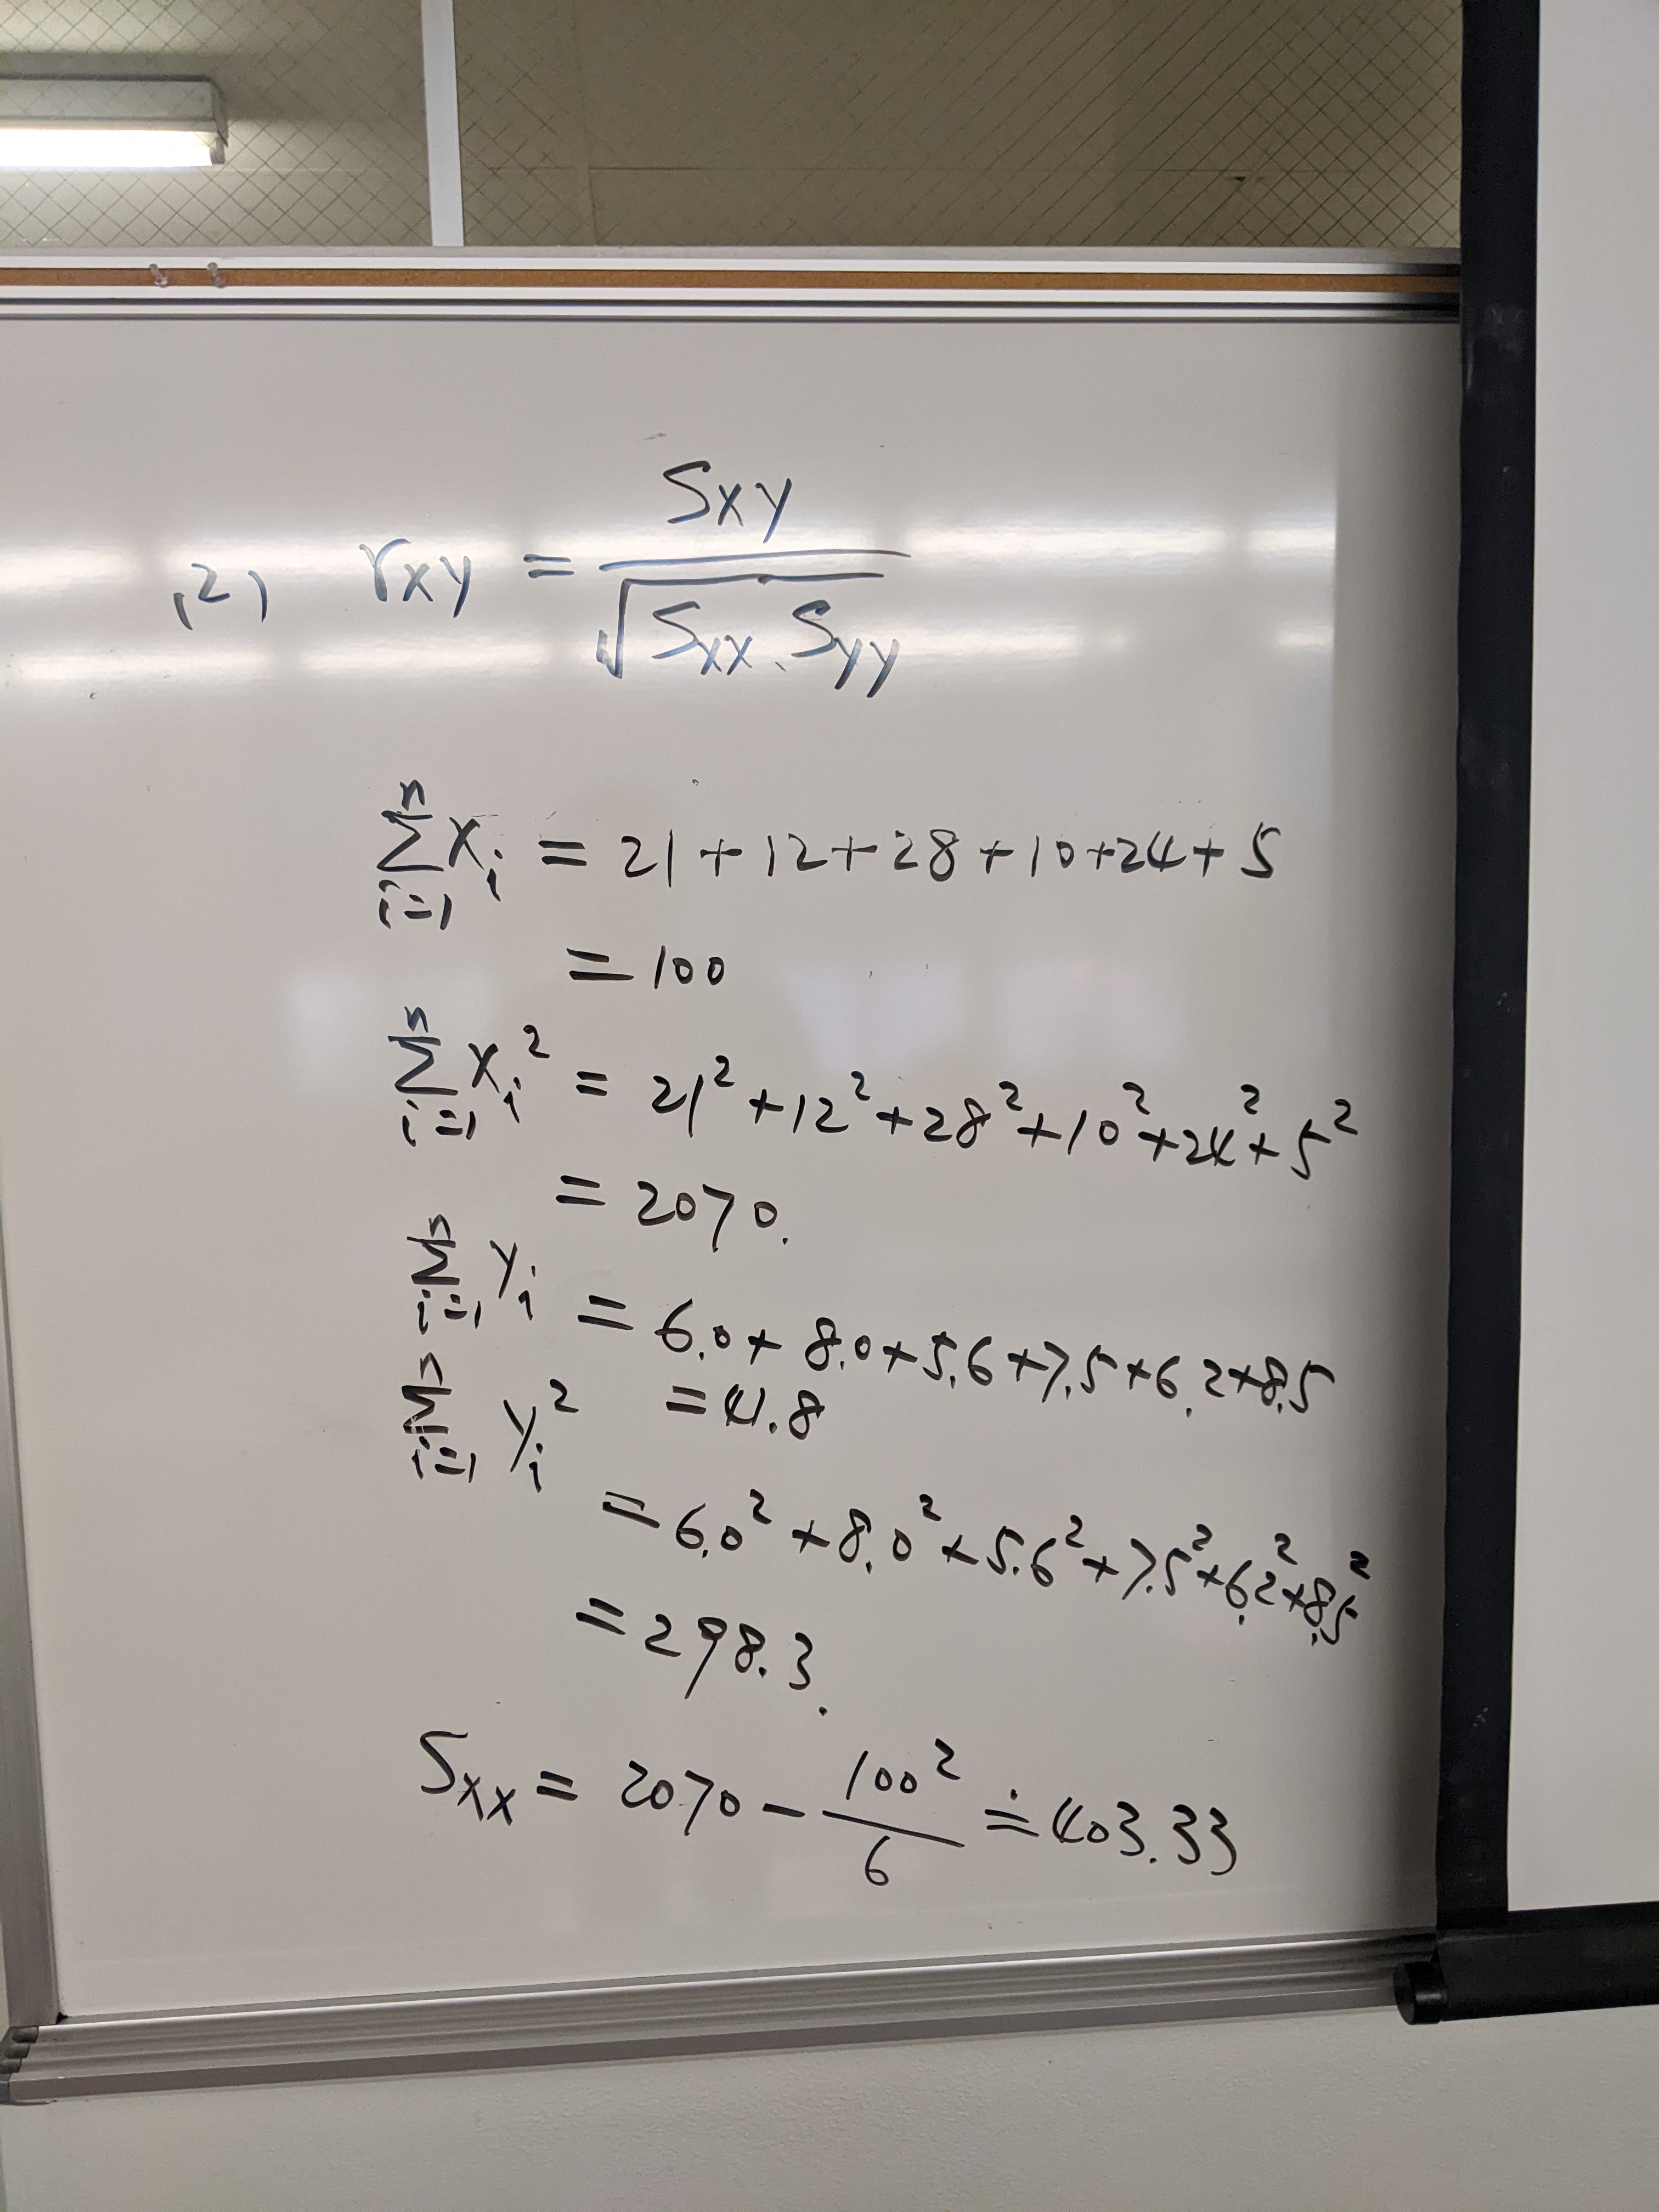 (2) rxy = Sxy / √Sxx・Syy
n Σ i=1 xi = 21+12+28+10+24+5
= 100
n Σ i=1 xi² = 21²+12²+28²+10²+24²+5²
= 2070.
n Σ i=1 yi = 6.0+8.0+5.6+7.5+6.2+8.5
= 41.8
n Σ i=1 yi²
= 6.0²+8.0²+5.6²+7.5²+6.2²+8.5²
= 298.3.
Sxx = 2070 - 100²/6 ≒ 403.33